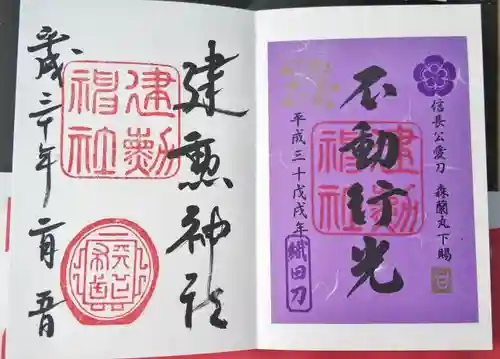 信長公愛刀 森蘭丸下賜
不動行光
建勲
神社
平成三十戊戌年
織田刀
建勲神社
建勲
神社
平成三十年